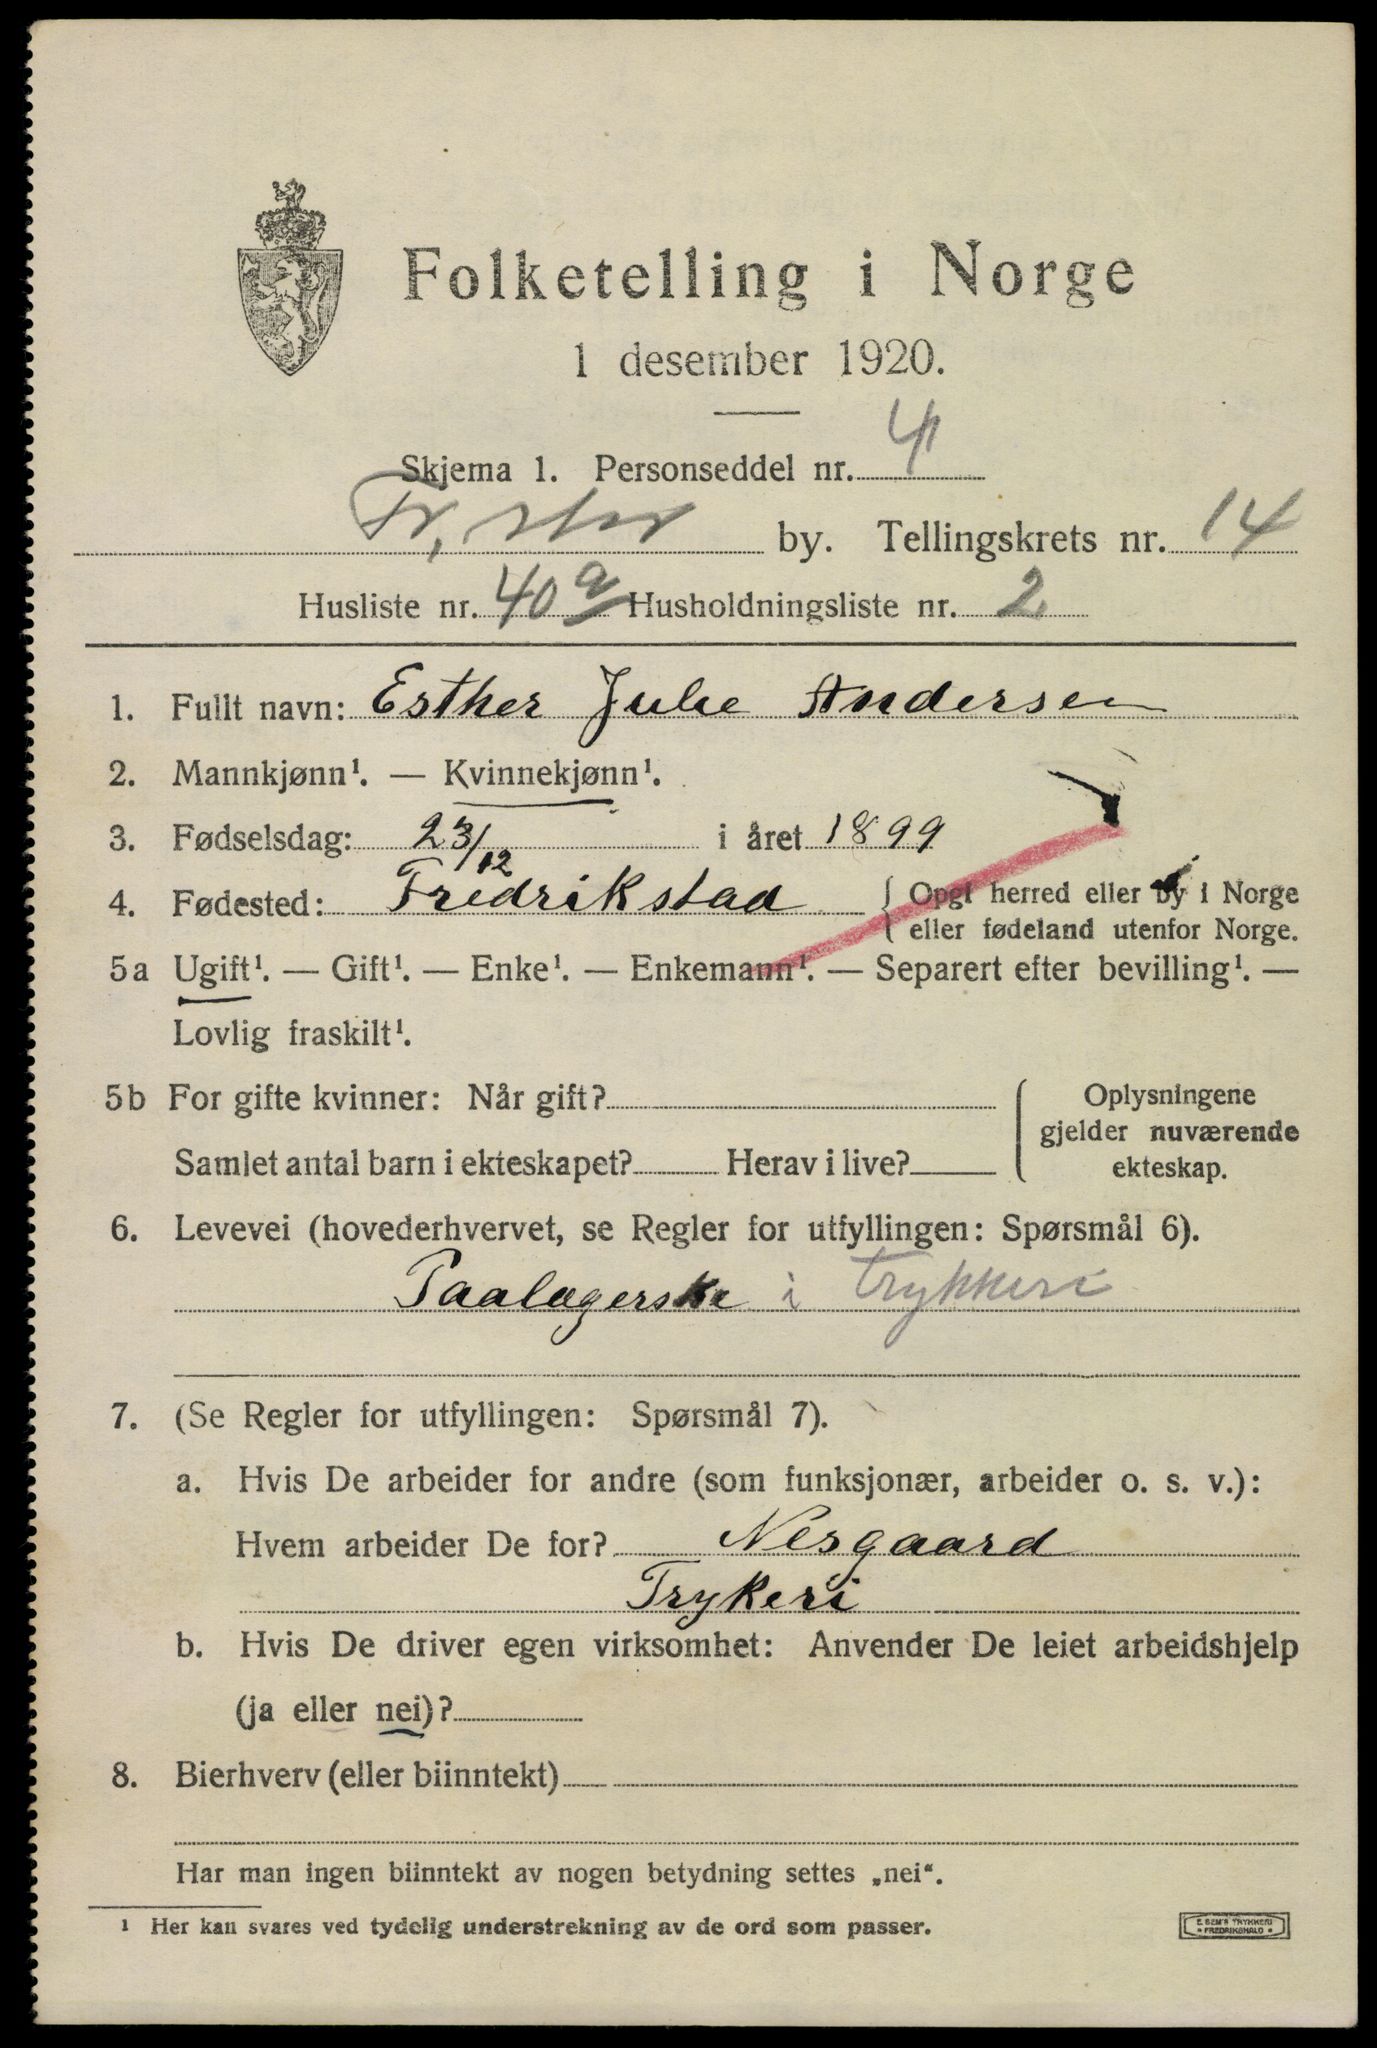 Folketelling i Norge
1 desember 1920.
Skjema 1. Personseddel nr. 4
Fr, stad by. Tellingskrets nr. 14
Husliste nr. 40a Husholdningsliste nr. 2
1. Fullt navn: Esther Julie Andersen
2. Mannkjønn¹. — Kvinnekjønn¹.
3. Fødselsdag: 23/12 i året 1899
4. Fødested: Fredrikstad { Opgi herred eller by i Norge
eller fødeland utenfor Norge.
5a Ugift¹. — Gift¹. — Enke¹. — Enkemann¹. — Separert efter bevilling¹. —
Lovlig fraskilt¹.
5b For gifte kvinner: Når gift?
Samlet antal barn i ekteskapet? Herav i live?
Oplysningene
gjelder nuværende
ekteskap.
6. Levevei (hovederhvervet, se Regler for utfyllingen: Spørsmål 6).
Paalægerske i trykkeri
7. (Se Regler for utfyllingen: Spørsmål 7).
a. Hvis De arbeider for andre (som funksjonær, arbeider o. s. v.):
Hvem arbeider De for? Nesgaard
Trykeri
b. Hvis De driver egen virksomhet: Anvender De leiet arbeidshjelp
(ja eller nei)?
8. Bierhverv (eller biinntekt)
Har man ingen biinntekt av nogen betydning settes „nei“.
¹ Her kan svares ved tydelig understrekning av de ord som passer.
E. SEM'S TRYKKERI
• FREDRIKSHALD •